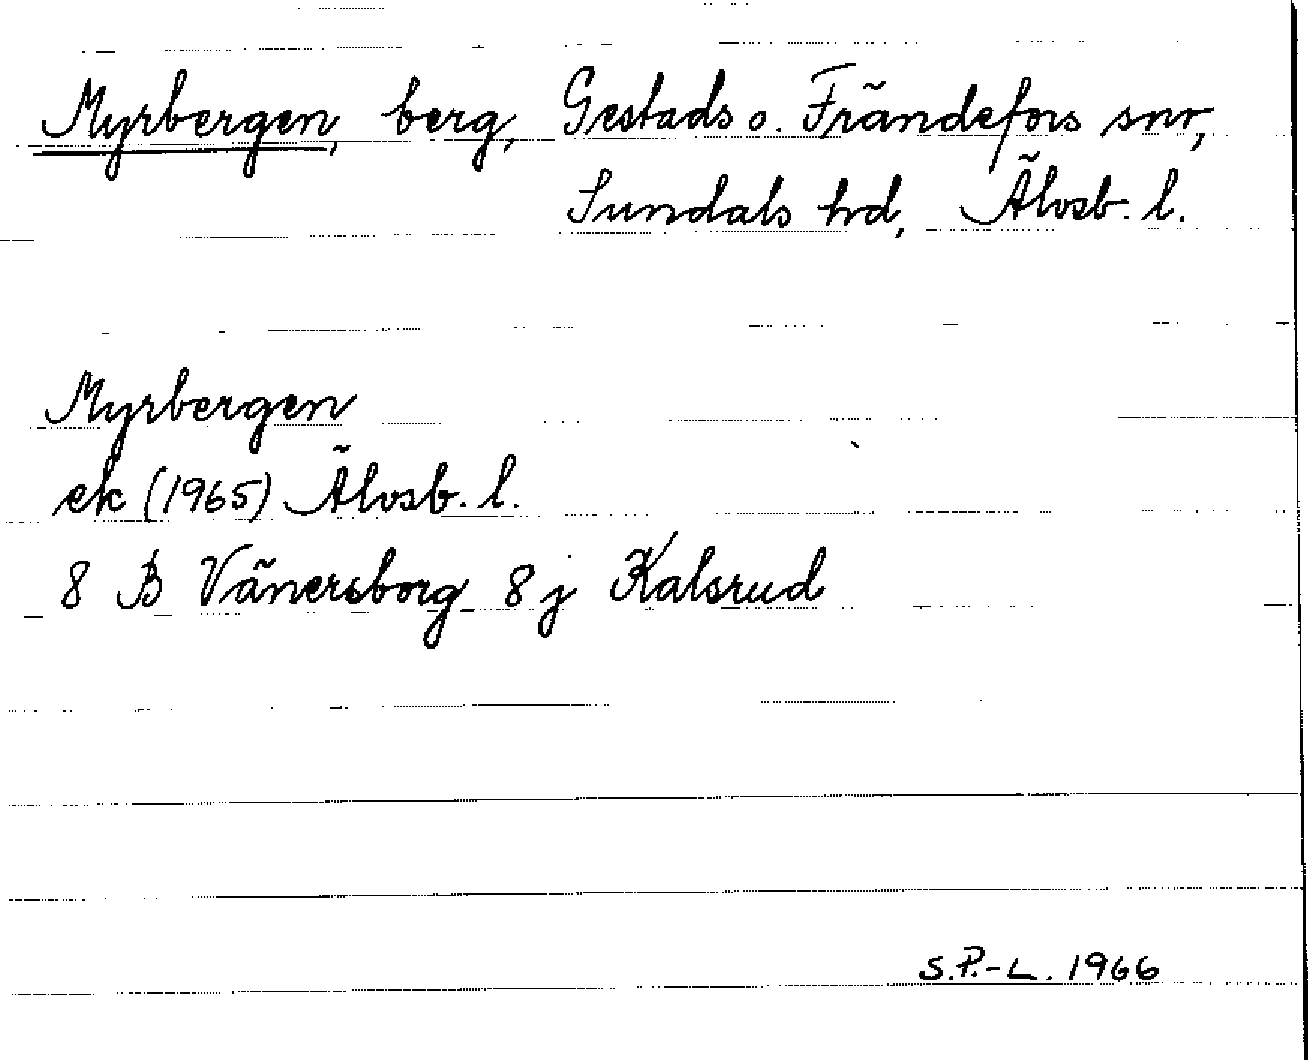 Myrbergen, berg, Gestads o. Frändefors snr,
Sundals hd, Älvsb. l.
Myrbergen
ek (1965) Älvsb. l.
8 B Vänersborg 8 j Kalsrud
S.P.-L. 1966